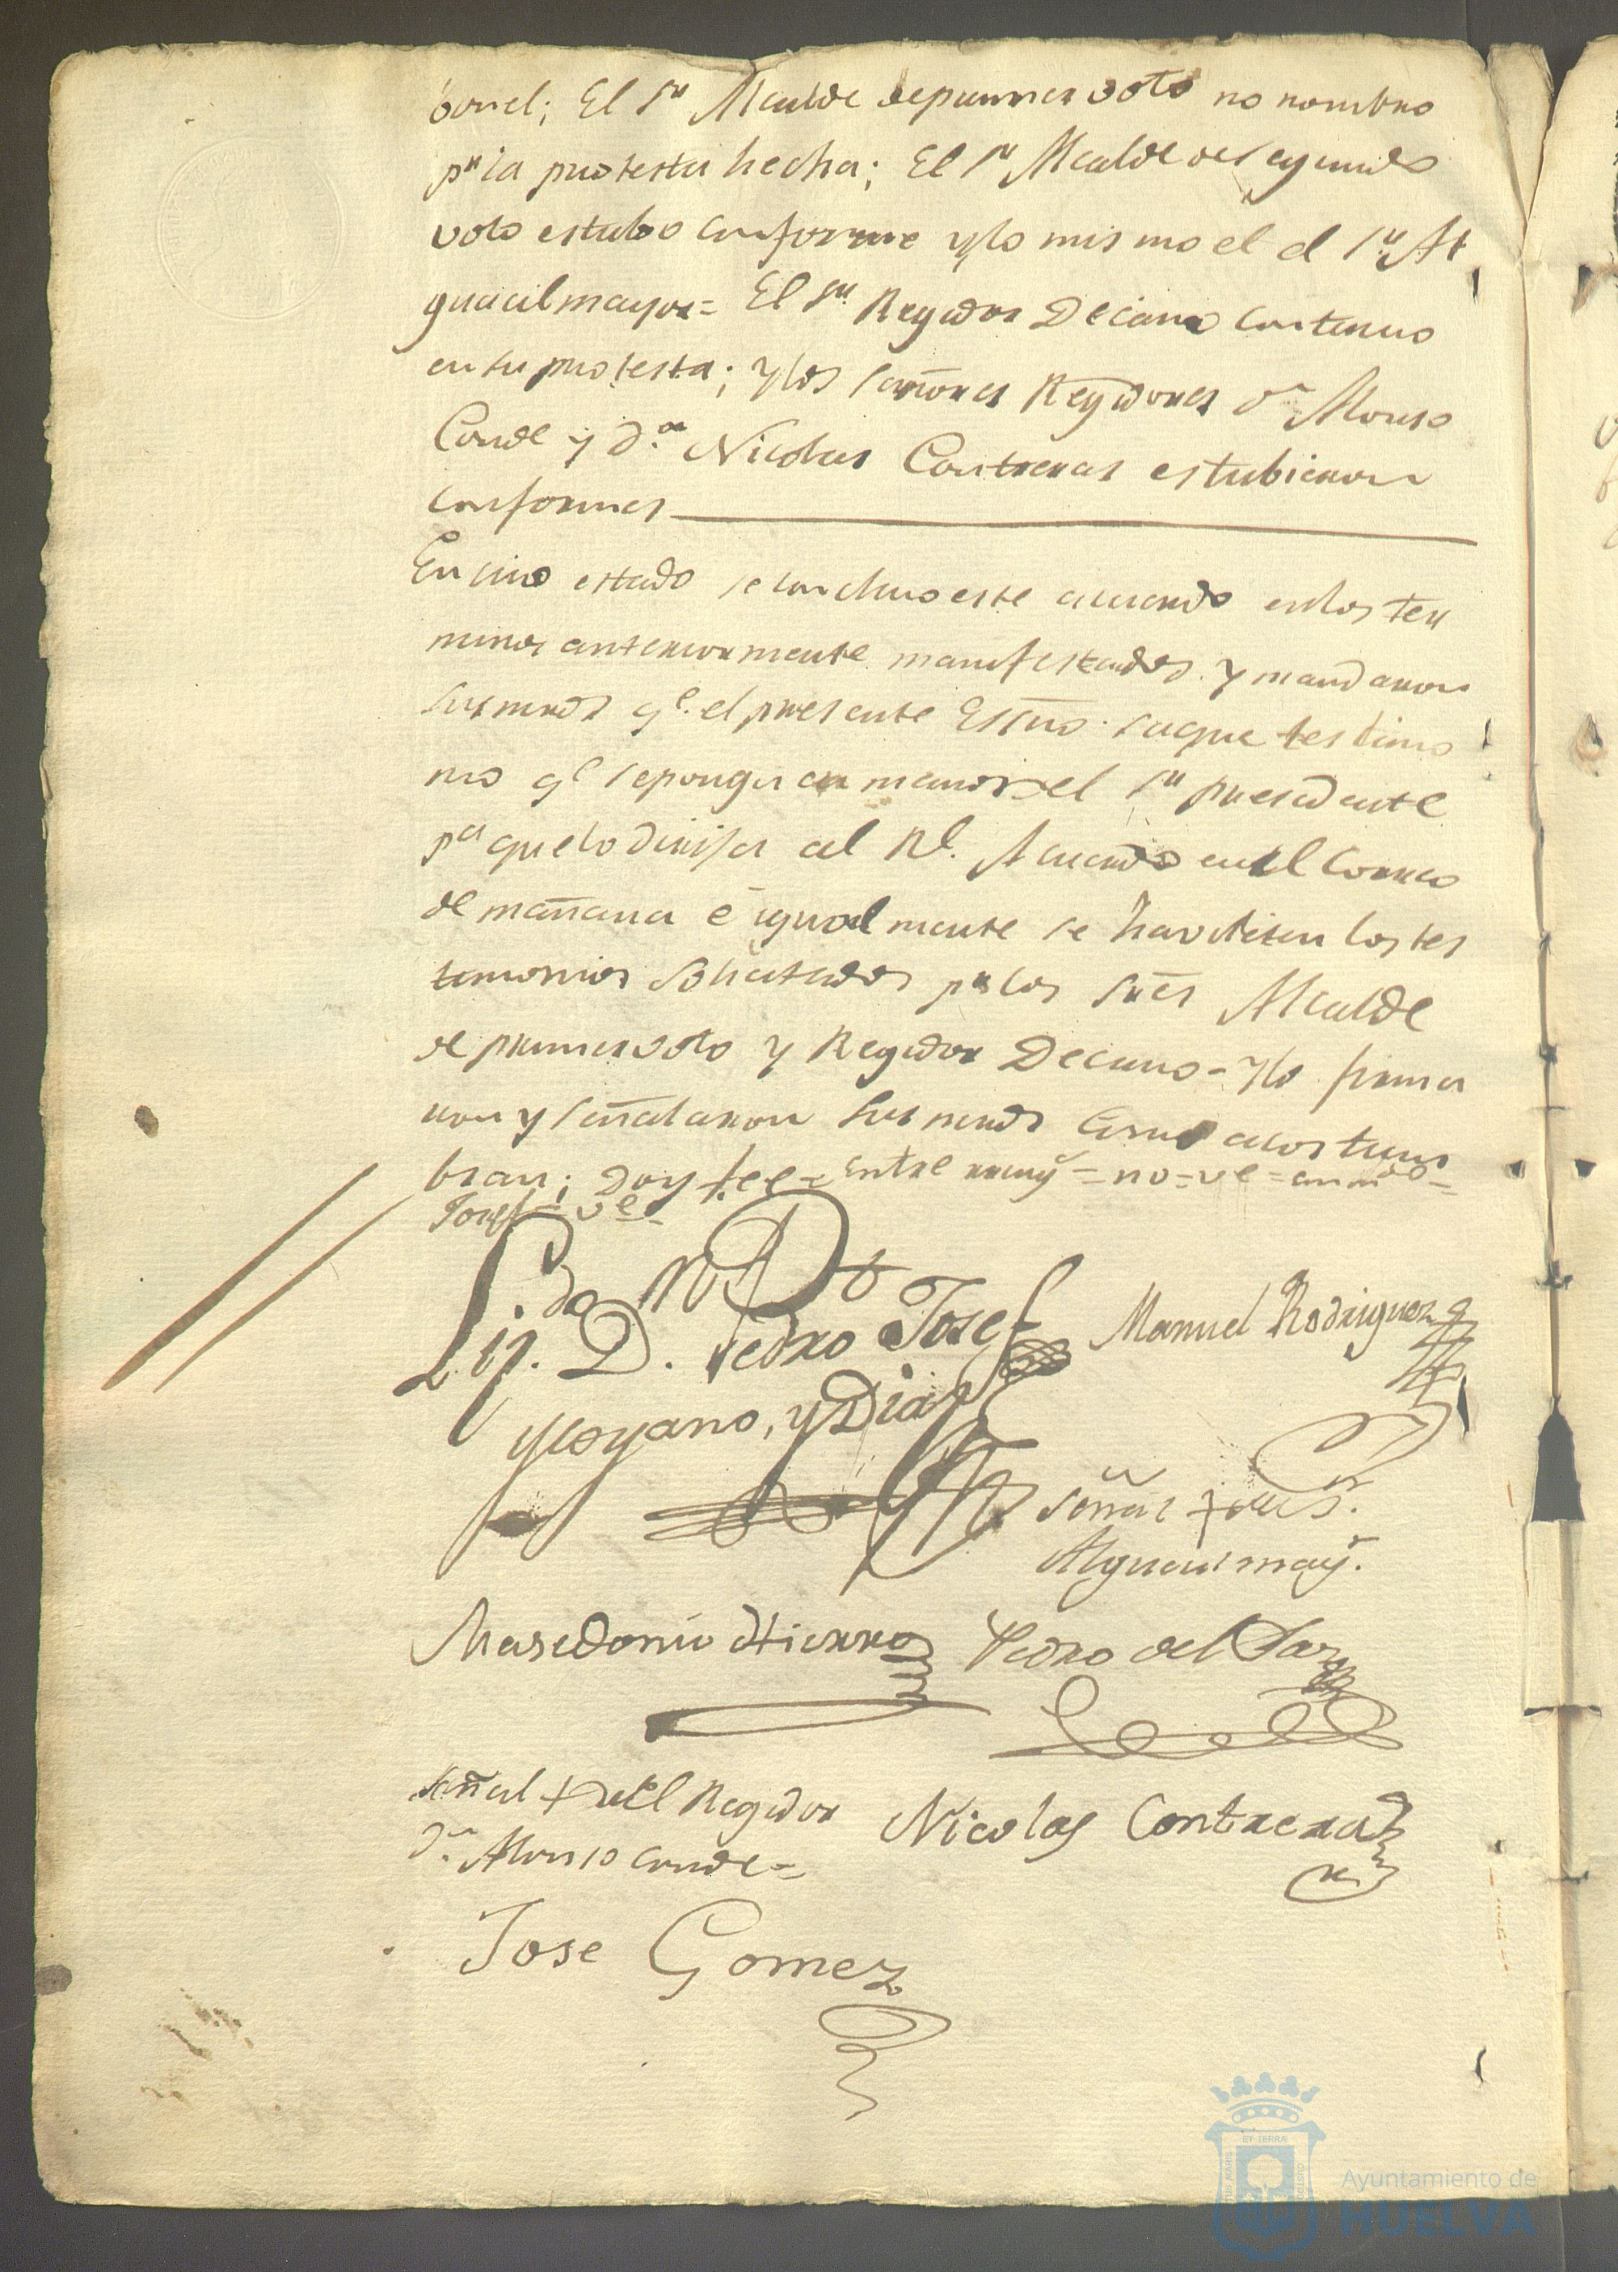 bonel; El Sr Alcalde de primer voto no nombro
pr la protesta hecha; El Sr Alcalde de segundo
voto estubo conforme y lo mismo el el Sr Al
guacil mayor= El Sr Regidor Decano continuo
en su protesta; y los señores Regidores Dn Alonso
Conde y D.on Nicolas Contreras estubieron
conformes
En cuio estado se concluio este acuerdo en los ter
minos anteriormente manifestados y mandaron
sus mrds qe. el presente Essno. saque testimo
nio qe se ponga en manos del Sr presidente
pa que lo dirija al Rl. Acuerdo en el Correo
de mañana é igualmente se haviliten los tes
timonios solicitados pr los Sres Alcalde
de primer voto y Regidor Decano= y lo firma
ron y señalaron sus mrds como acostum
bran; doy fee= Entre =no=ve=enmdo=
Josef=ve=
Lizdo. D. Pedro Josef
Moyano, y Diaz
Manuel Rodriguez
Señal + del S.
Alguacil mayr.
Masedonio Hierro
Pedro del Paz
Señal + del Regidor
Dn. Alonso Conde=
Nicolas Contreras
Jose Gomez
ET TERRÆ
Ayuntamiento de
HUELVA